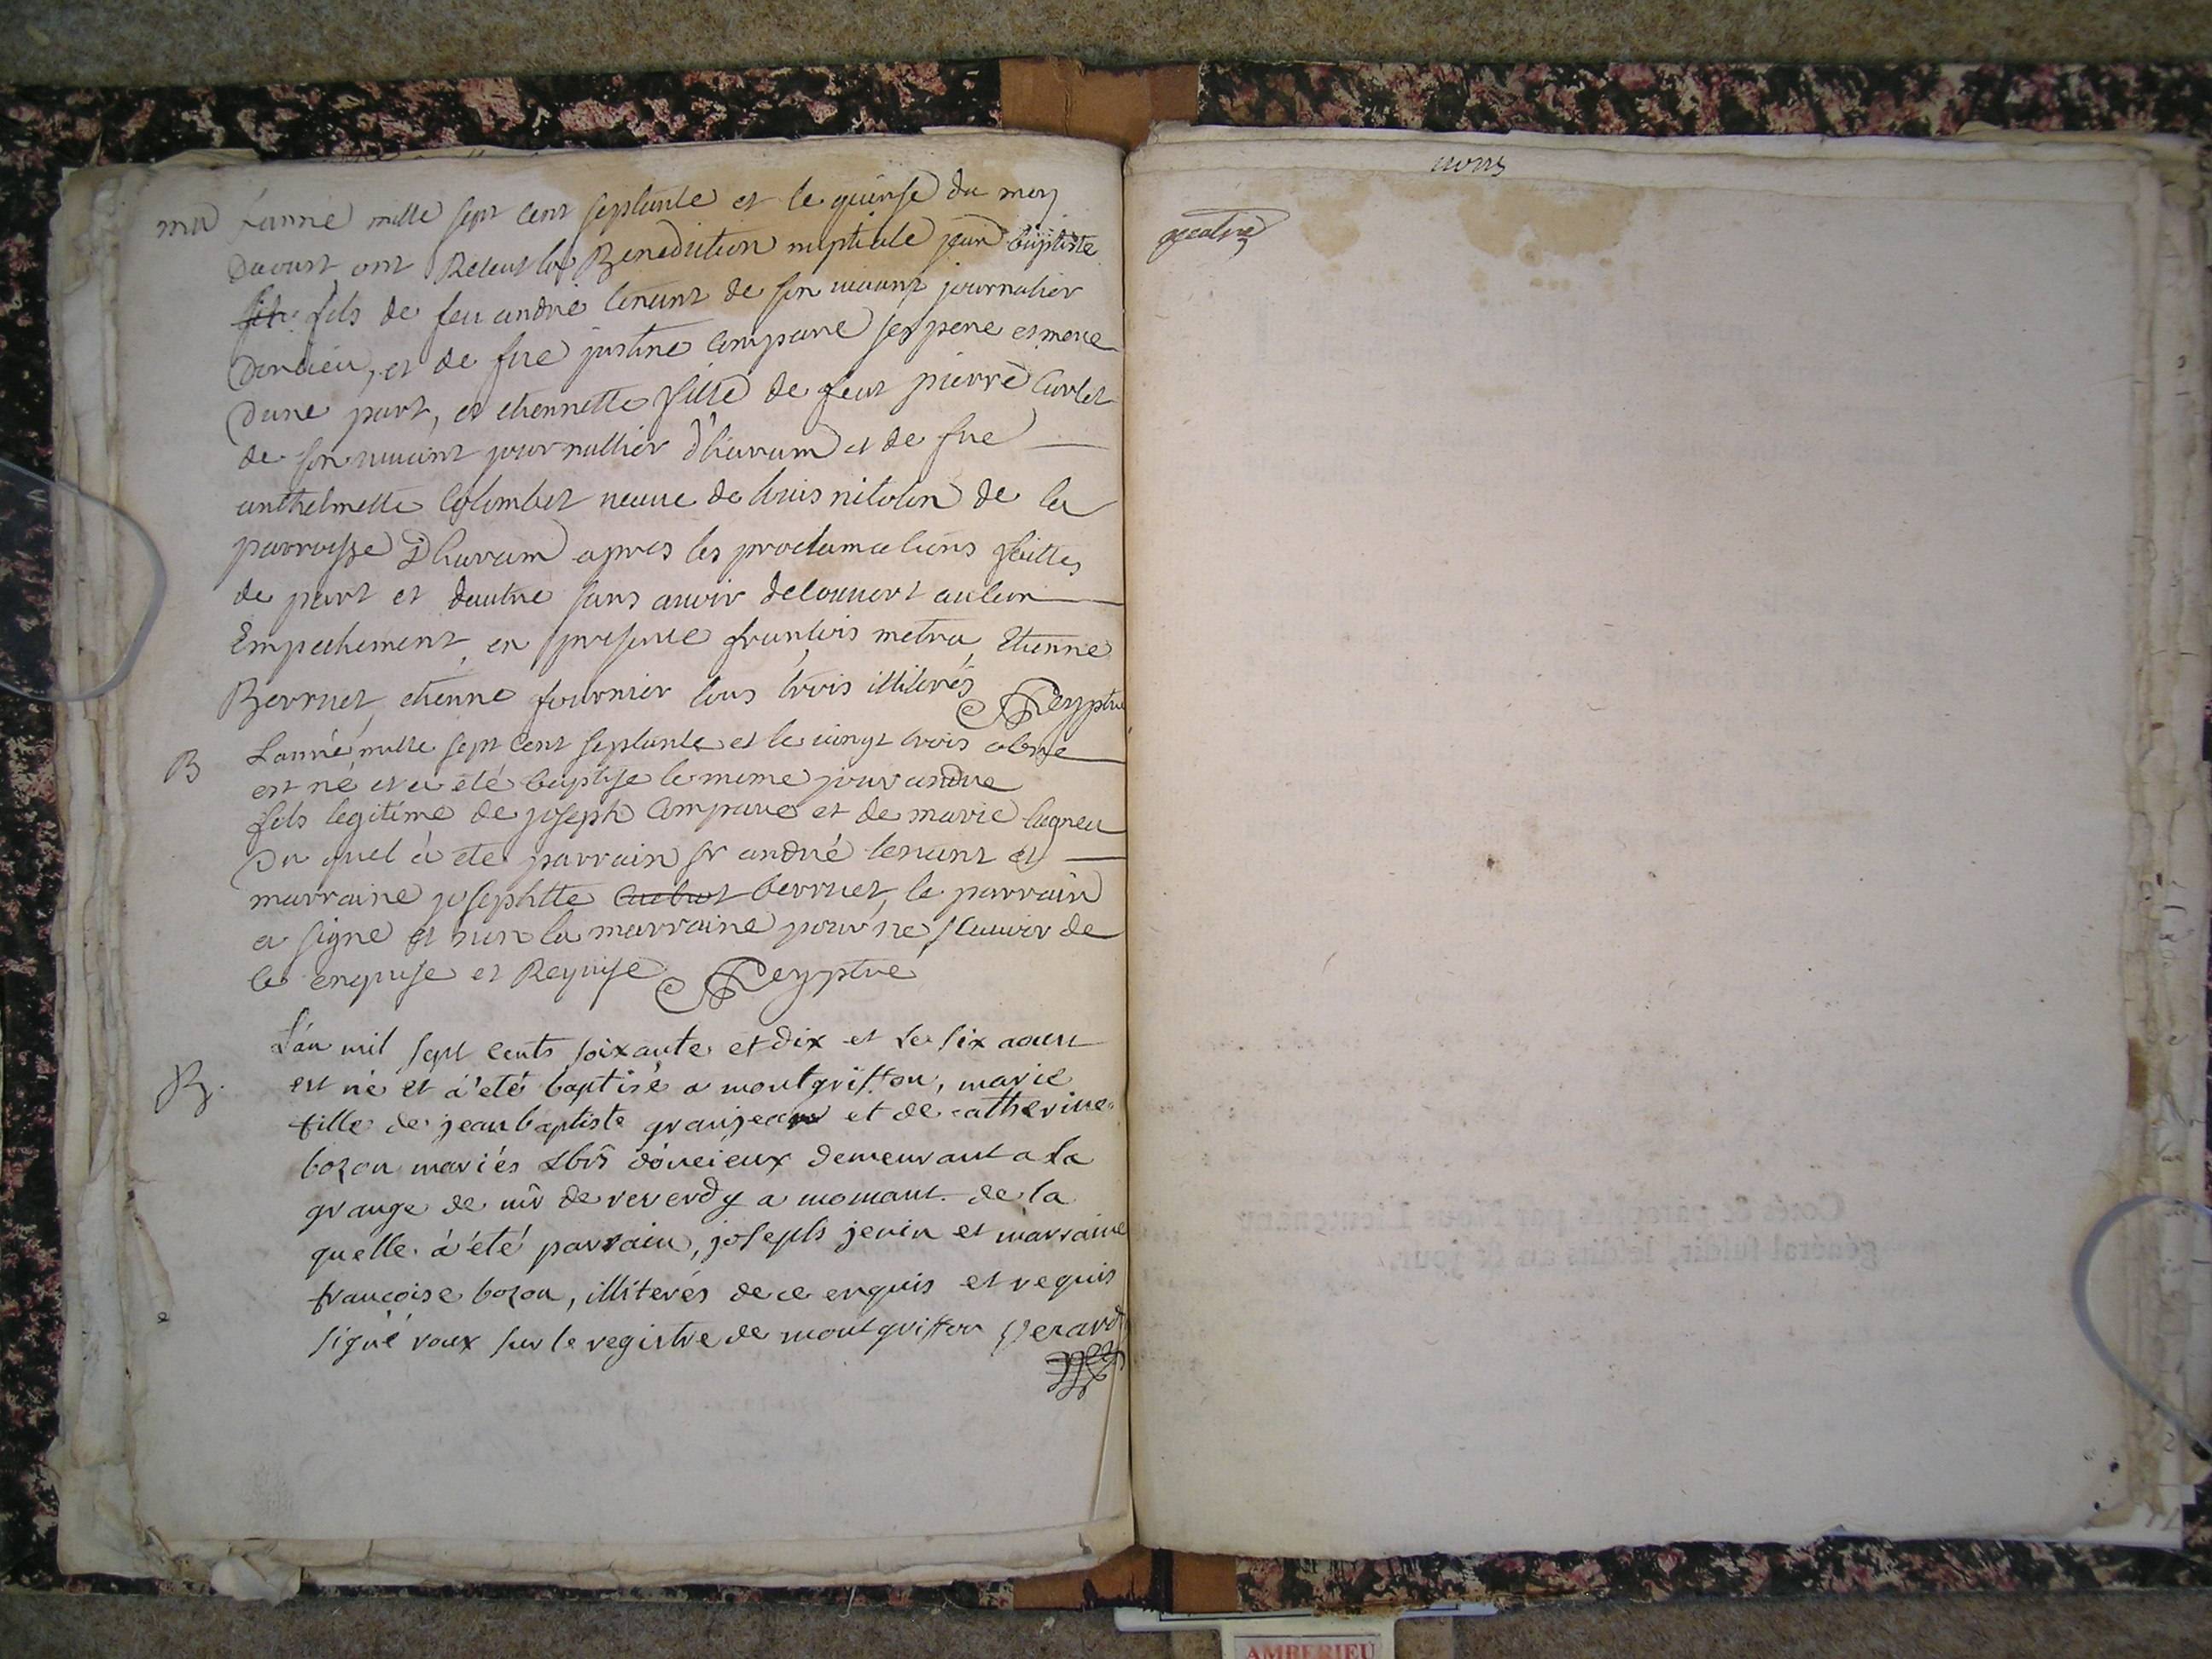 ma L'anné mille sept cent septante et le quinse du moy
Davoust ont Receut la Benediction nuptiale jean baptiste
fils de feu andré tenant de son vivant journalier
et de fue justine Compare ses pere et mere
Dune part, et etiennette fille de feut pierre Curlet
de son vivant journallier D'havram et de fue
anthelmette Colombet veuve de louis nicolon de la
parroisse Dhavram apres les proclamations faittes
de part et dautre sans avoir decouvert aucun
Empechement, en presence francois metra, Etienne
Berruet, etienne fournier tous trois illiterés Reyptie
B L'anné mille sept cent septante et le vingt trois
est né et a eté baptise le meme jour andre
fils legitime de joseph Compare et de marie lagneu
Du quel à ete parrain sr andré tenant et
marraine josephtte berruet, le parrain
a signe et non la marraine pour ne scavoir de
ce enquise et Requise Reyptie
B. L'an mil sept cents soixante et dix et le six aoust
est né et à été baptisé a montgriffon, marie
fille de jean baptiste granjean et de catherine
bozon mariés demeurant a la
grange de mr de reverdy a momant. de la
quelle à été parrain, joseph jenin et marraine
francoise bozon, illiterés de ce enquis et requis
signé roux sur le registre de montgriffon
quatre
Cotés & paraphés par Nous Lieutenant
général susdit, lesdits an & jour.
AMBERIEU